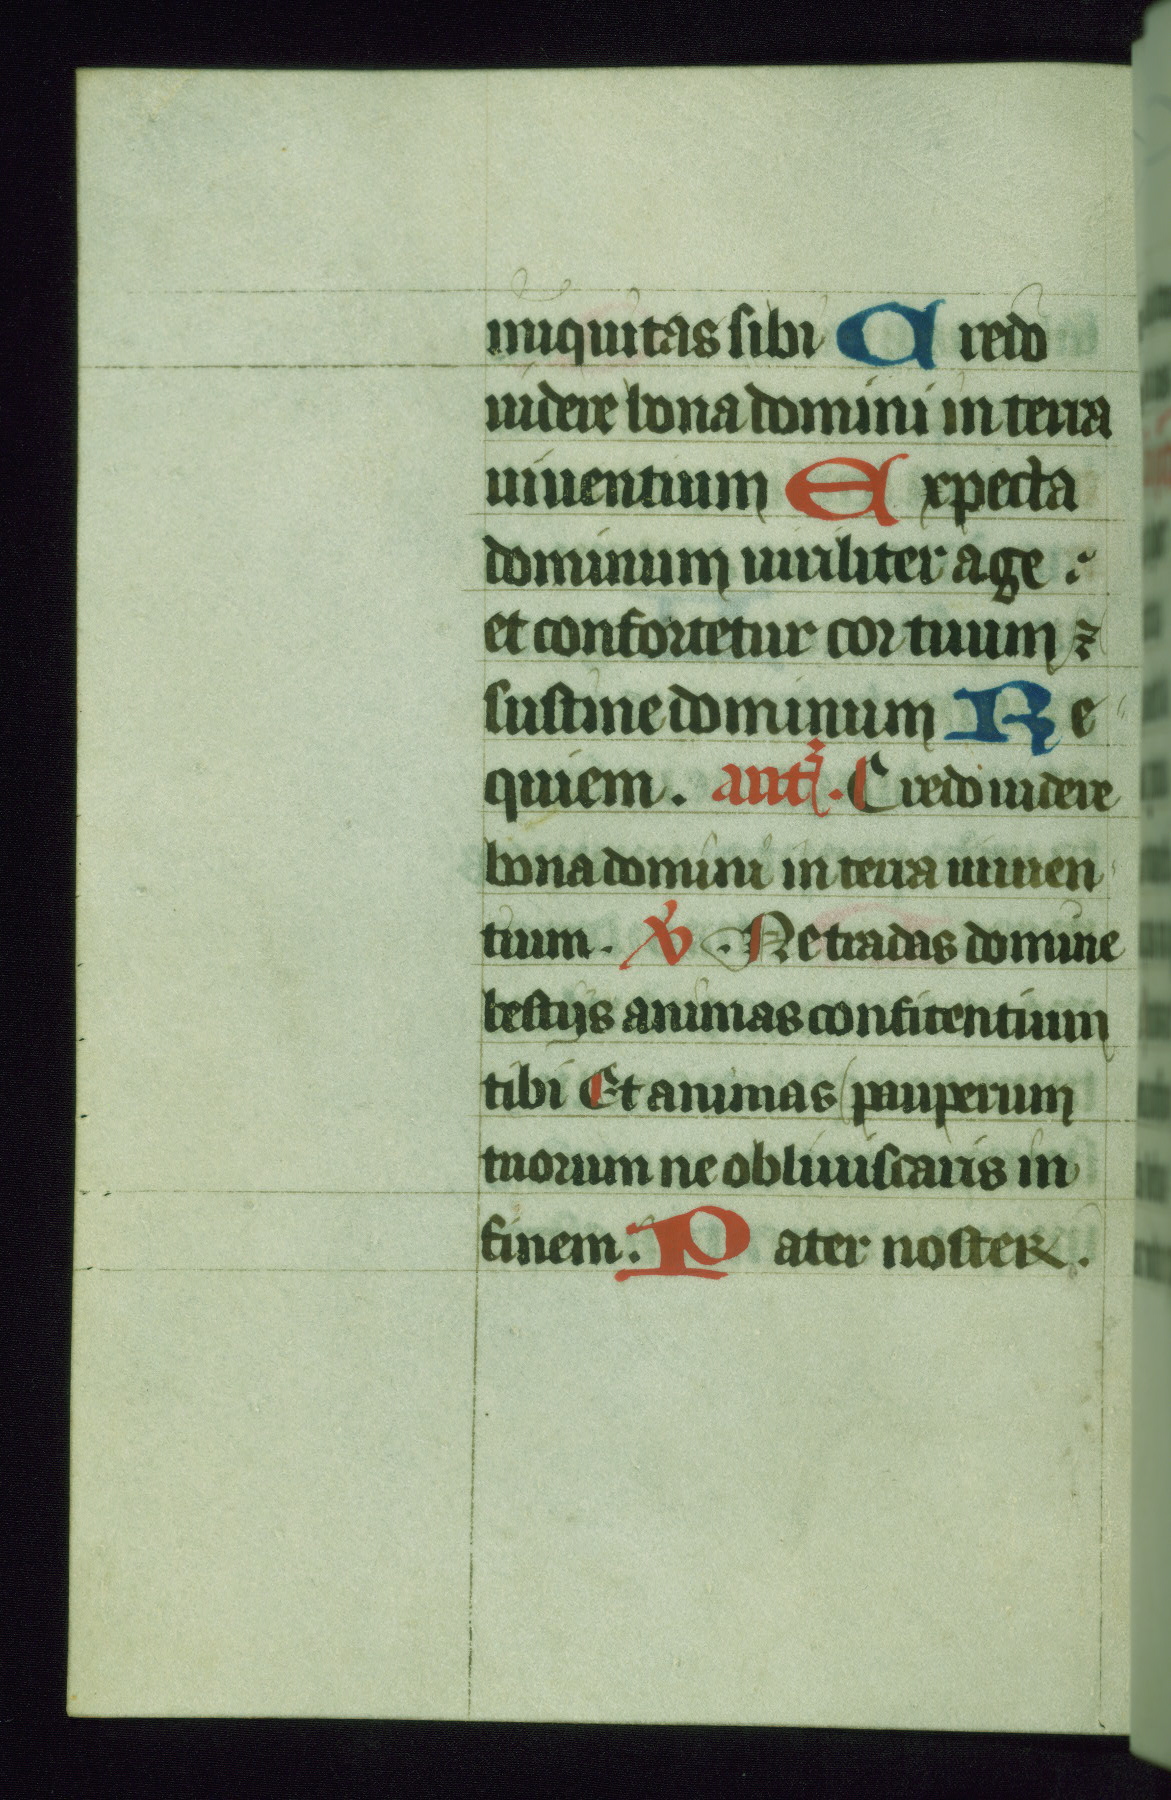 iniquitas sibi Credo
uidere bona domini in terra
uiuentium Expecta
dominum uiriliter age :
et confortetur cor tuum ⁊
sustine dominum Re
quiem. ant̄. Credo uidere
bona domini in terra uiuen
tium. ℣. Ne tradas domine
bestijs animas confitentium
tibi Et animas pauperum
tuorum ne obliuiscaris in
finem. Pater noster.